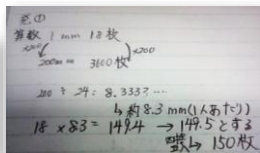 算数 1mm 18枚
×200 ×200
200mm 3600枚
200÷24=8.3333...
↳約8.3mm(1人あたり)
18×8.3=149.4→149.5とする
↳150枚